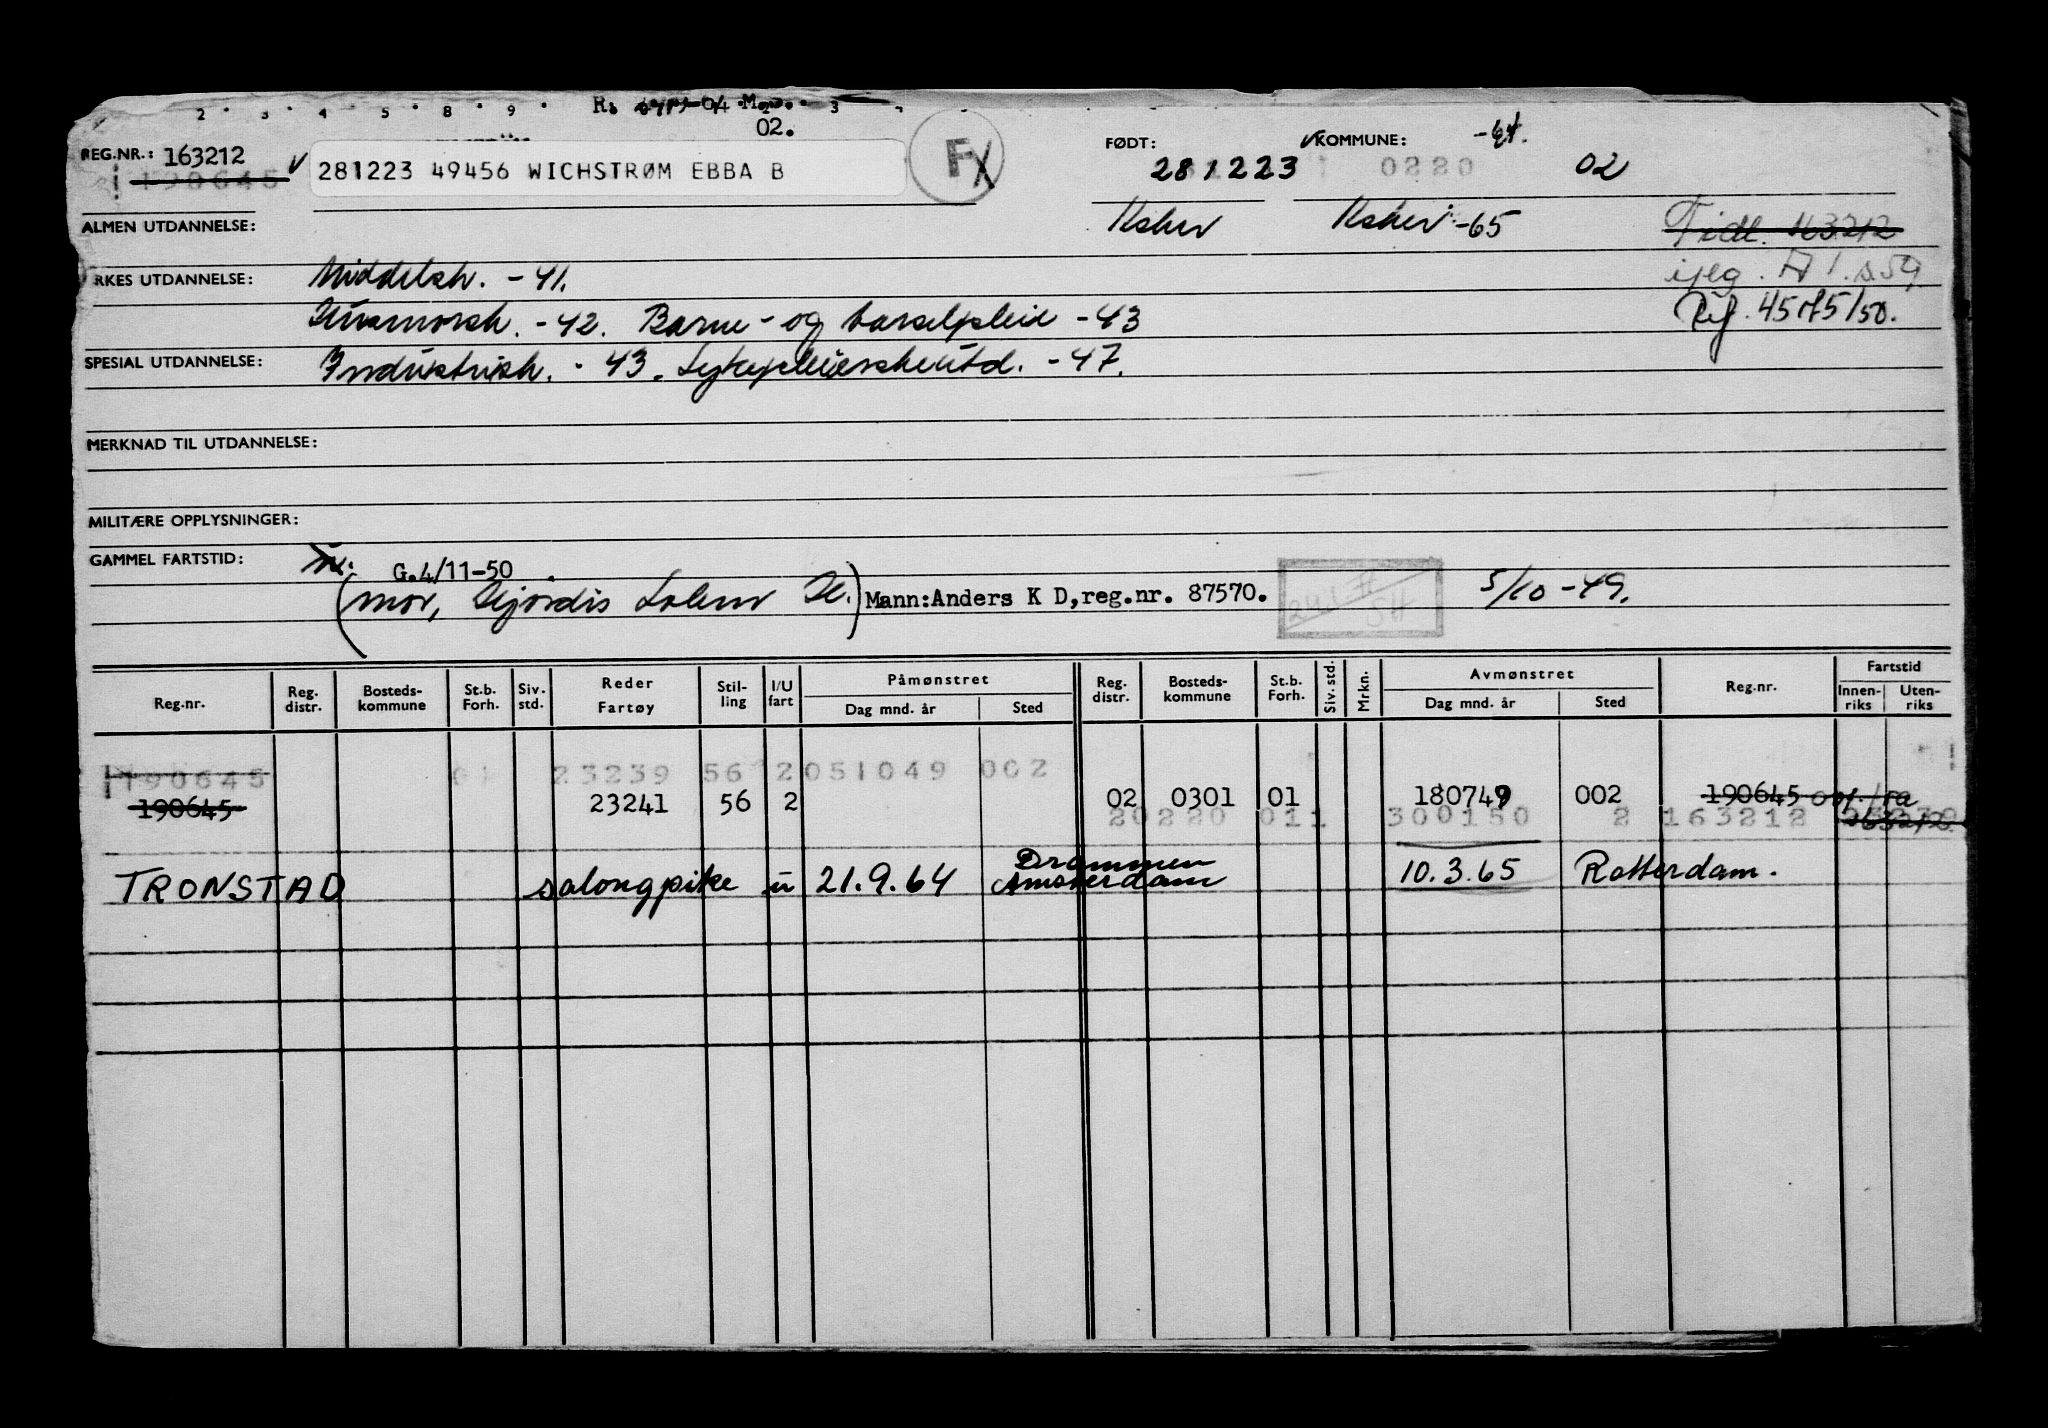 2 . 3 . 4 . 5 . 8 . 9 .
02.
REG.NR.: 163212
190645
281223 49456 WICHSTRØM EBBA B
F
FØDT:
281223
KOMMUNE:
0220
02
ALMEN UTDANNELSE:
-65
Tidl. 163212
YRKES UTDANNELSE: Middelsk. -41.
Husmorsk. -42. Barne- og barselpleie -43
SPESIAL UTDANNELSE: Industrisk. -43. Sykepleierskeutd. -47.
MERKNAD TIL UTDANNELSE:
MILITÆRE OPPLYSNINGER:
GAMMEL FARTSTID:
G.4/11-50
(mor, Hjördis H.) Mann:Anders K D,reg.nr. 87570.
5/10 -49.
Reg.nr. Reg. distr. Bosteds- kommune St.b. Forh. Siv. std. Reder Fartøy Stil- ling I/U fart Påmønstret Dag mnd. år Sted Reg. distr. Bosteds- kommune St.b. Forh. Siv. std. Mrkn. Avmønstret Dag mnd. år Sted Reg.nr. Fartstid Innen- riks Uten- riks
190645 23239 56 2 051049 002
190645 23241 56 2 02 0301 01 180749 002 190645
20220 011 300150 2 163212
TRONSTAD salongpike u 21.9.64 Drammen 10.3.65 Rotterdam.
Amsterdam